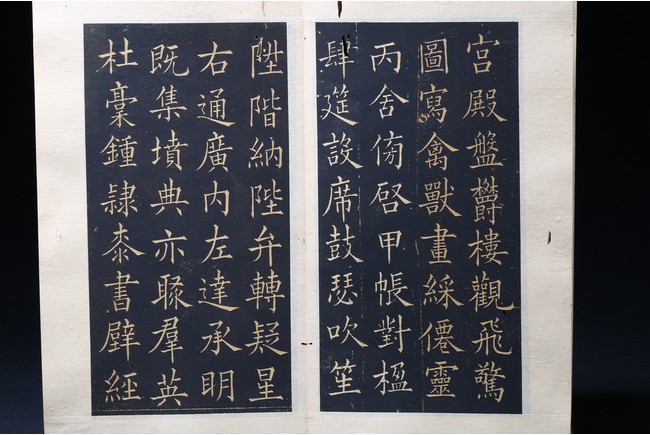 宮殿盤欝樓觀飛驚
圖寫禽獸畫綵僊靈
丙舍傍啓甲帳對楹
肆筵設席鼓瑟吹笙
陞階納陛弁轉疑星
右通廣內左達承明
既集墳典亦聚羣英
杜稾鍾隷桼書壁經